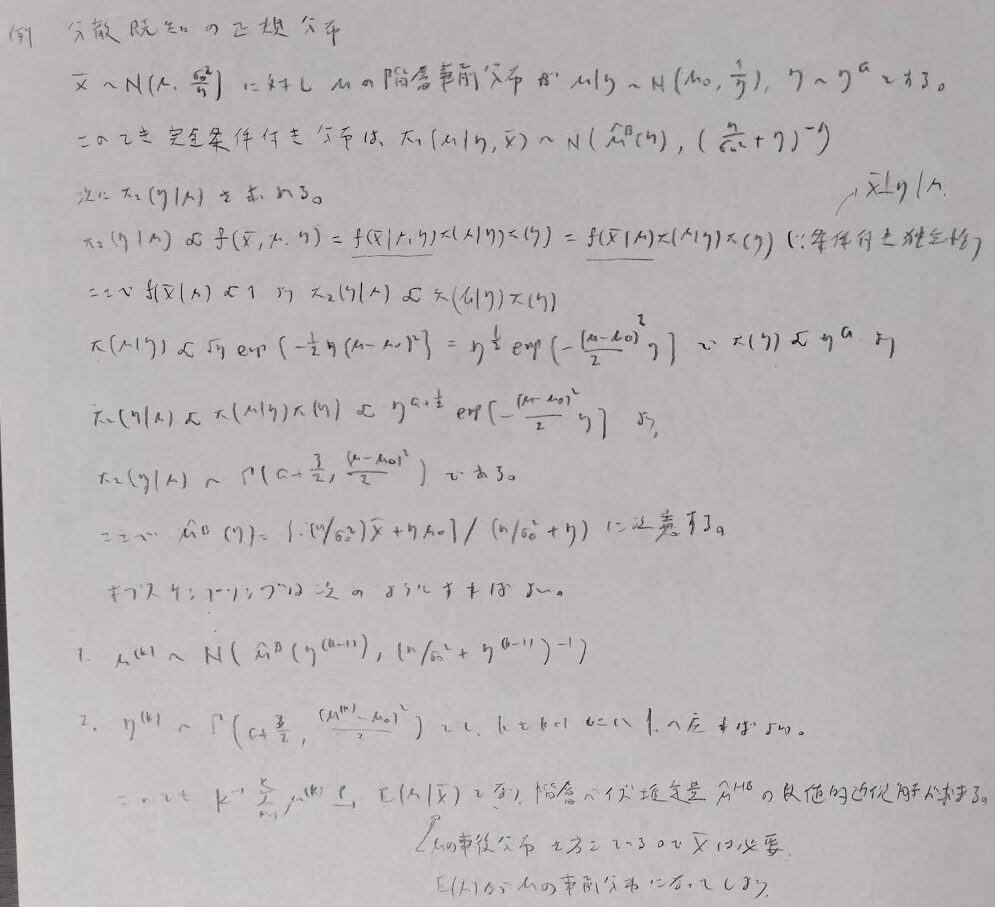 例. 分散既知の正規分布
x̄ ~ N(μ, σ₀²/n) に対し μの階層事前分布が μ|η ~ N(μ₀, 1/η), η ~ η^a とする。
このとき完全条件付き分布は、π₁(μ|η, x̄) ~ N(μ̂^B(η), (n/σ₀² + η)^-1)
次に π₂(η|μ) を求める。
x̄⊥η|μ.
π₂(η|μ) ∝ f(x̄, μ, η) = f(x̄|μ, η)π(μ|η)π(η) = f(x̄|μ)π(μ|η)π(η) (∵条件付き独立性)
ここで f(x̄|μ) ∝ 1 より π₂(η|μ) ∝ π(μ|η)π(η)
π(μ|η) ∝ √η exp{-1/2 η(μ-μ₀)²} = η^{1/2} exp{-(μ-μ₀)²/2 η} で π(η) ∝ η^a より
π₂(η|μ) ∝ π(μ|η)π(η) ∝ η^{a+1/2} exp{-(μ-μ₀)²/2 η} より,
π₂(η|μ) ~ Γ(a+3/2, (μ-μ₀)²/2) である。
ここで μ̂^B(η) = {(n/σ₀²)x̄ + ημ₀} / (n/σ₀² + η) に注意する。
ギブスサンプリングは次のようにすればよい。
1. μ^(k) ~ N(μ̂^B(η^(k-1)), (n/σ₀² + η^(k-1))^-1)
2. η^(k) ~ Γ(a+3/2, (μ^(k)-μ₀)²/2) とし、kをk+1にし 1.へ戻ればよい。
このとき K^-1 Σ μ^(k) →p E(μ|x̄) となり、階層ベイズ推定量 μ̂^HB の数値的近似解が求まる。
μの事後分布を考えているので x̄ は必要.
E(μ)だと μの事前分布になってしまう.